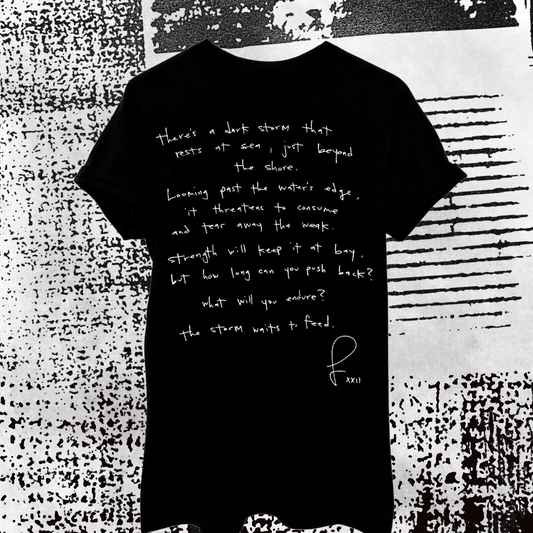 there's a dark storm that
rests at sea, just beyond
the shore.
Looming past the water's edge,
it threatens to consume
and tear away the weak.
strength will keep it at bay,
but how long can you push back?
what will you endure?
the storm waits to feed.
XXII